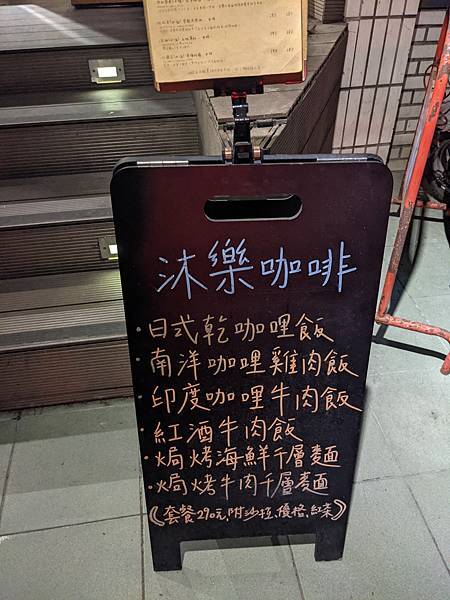 沐樂咖啡
·日式乾咖哩飯
·南洋咖哩雞肉飯
·印度咖哩牛肉飯
·紅酒牛肉飯
·焗烤海鮮千層麵
·焗烤牛肉千層麵
(套餐290元,附沙拉,優格,紅茶)